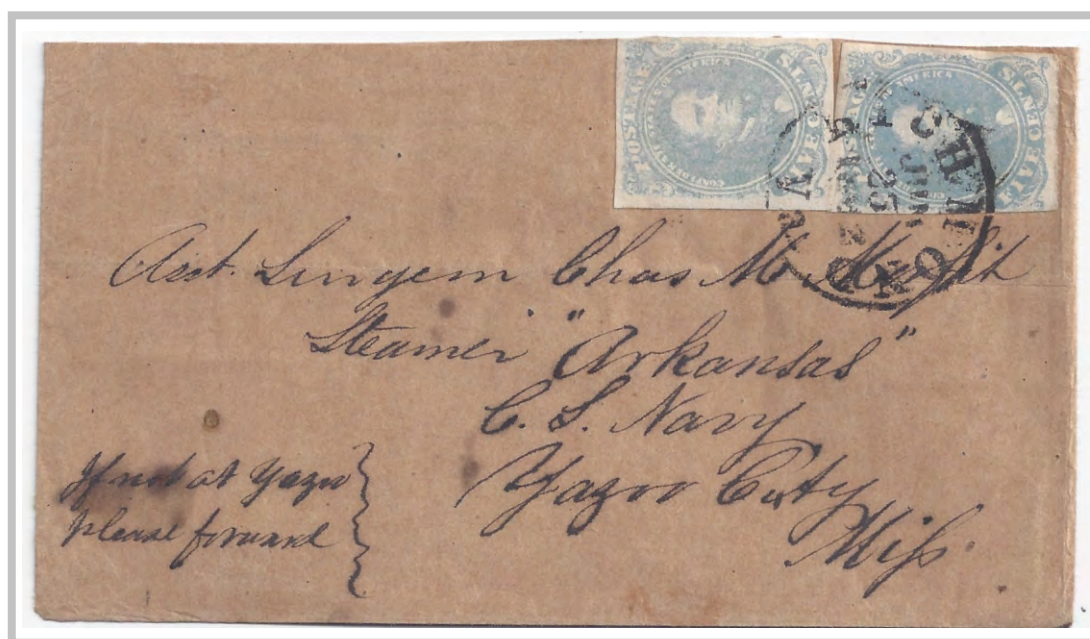 POSTAGE
CONFEDERATE STATES OF AMERICA
FIVE CENTS
POSTAGE
CONFEDERATE STATES OF AMERICA
FIVE CENTS
RICHMOND VA.
JUN
Asst. Surgeon Chas M.
Steamer "Arkansas"
C. S. Navy
Yazoo City
Miss.
If not at Yazoo
please forward